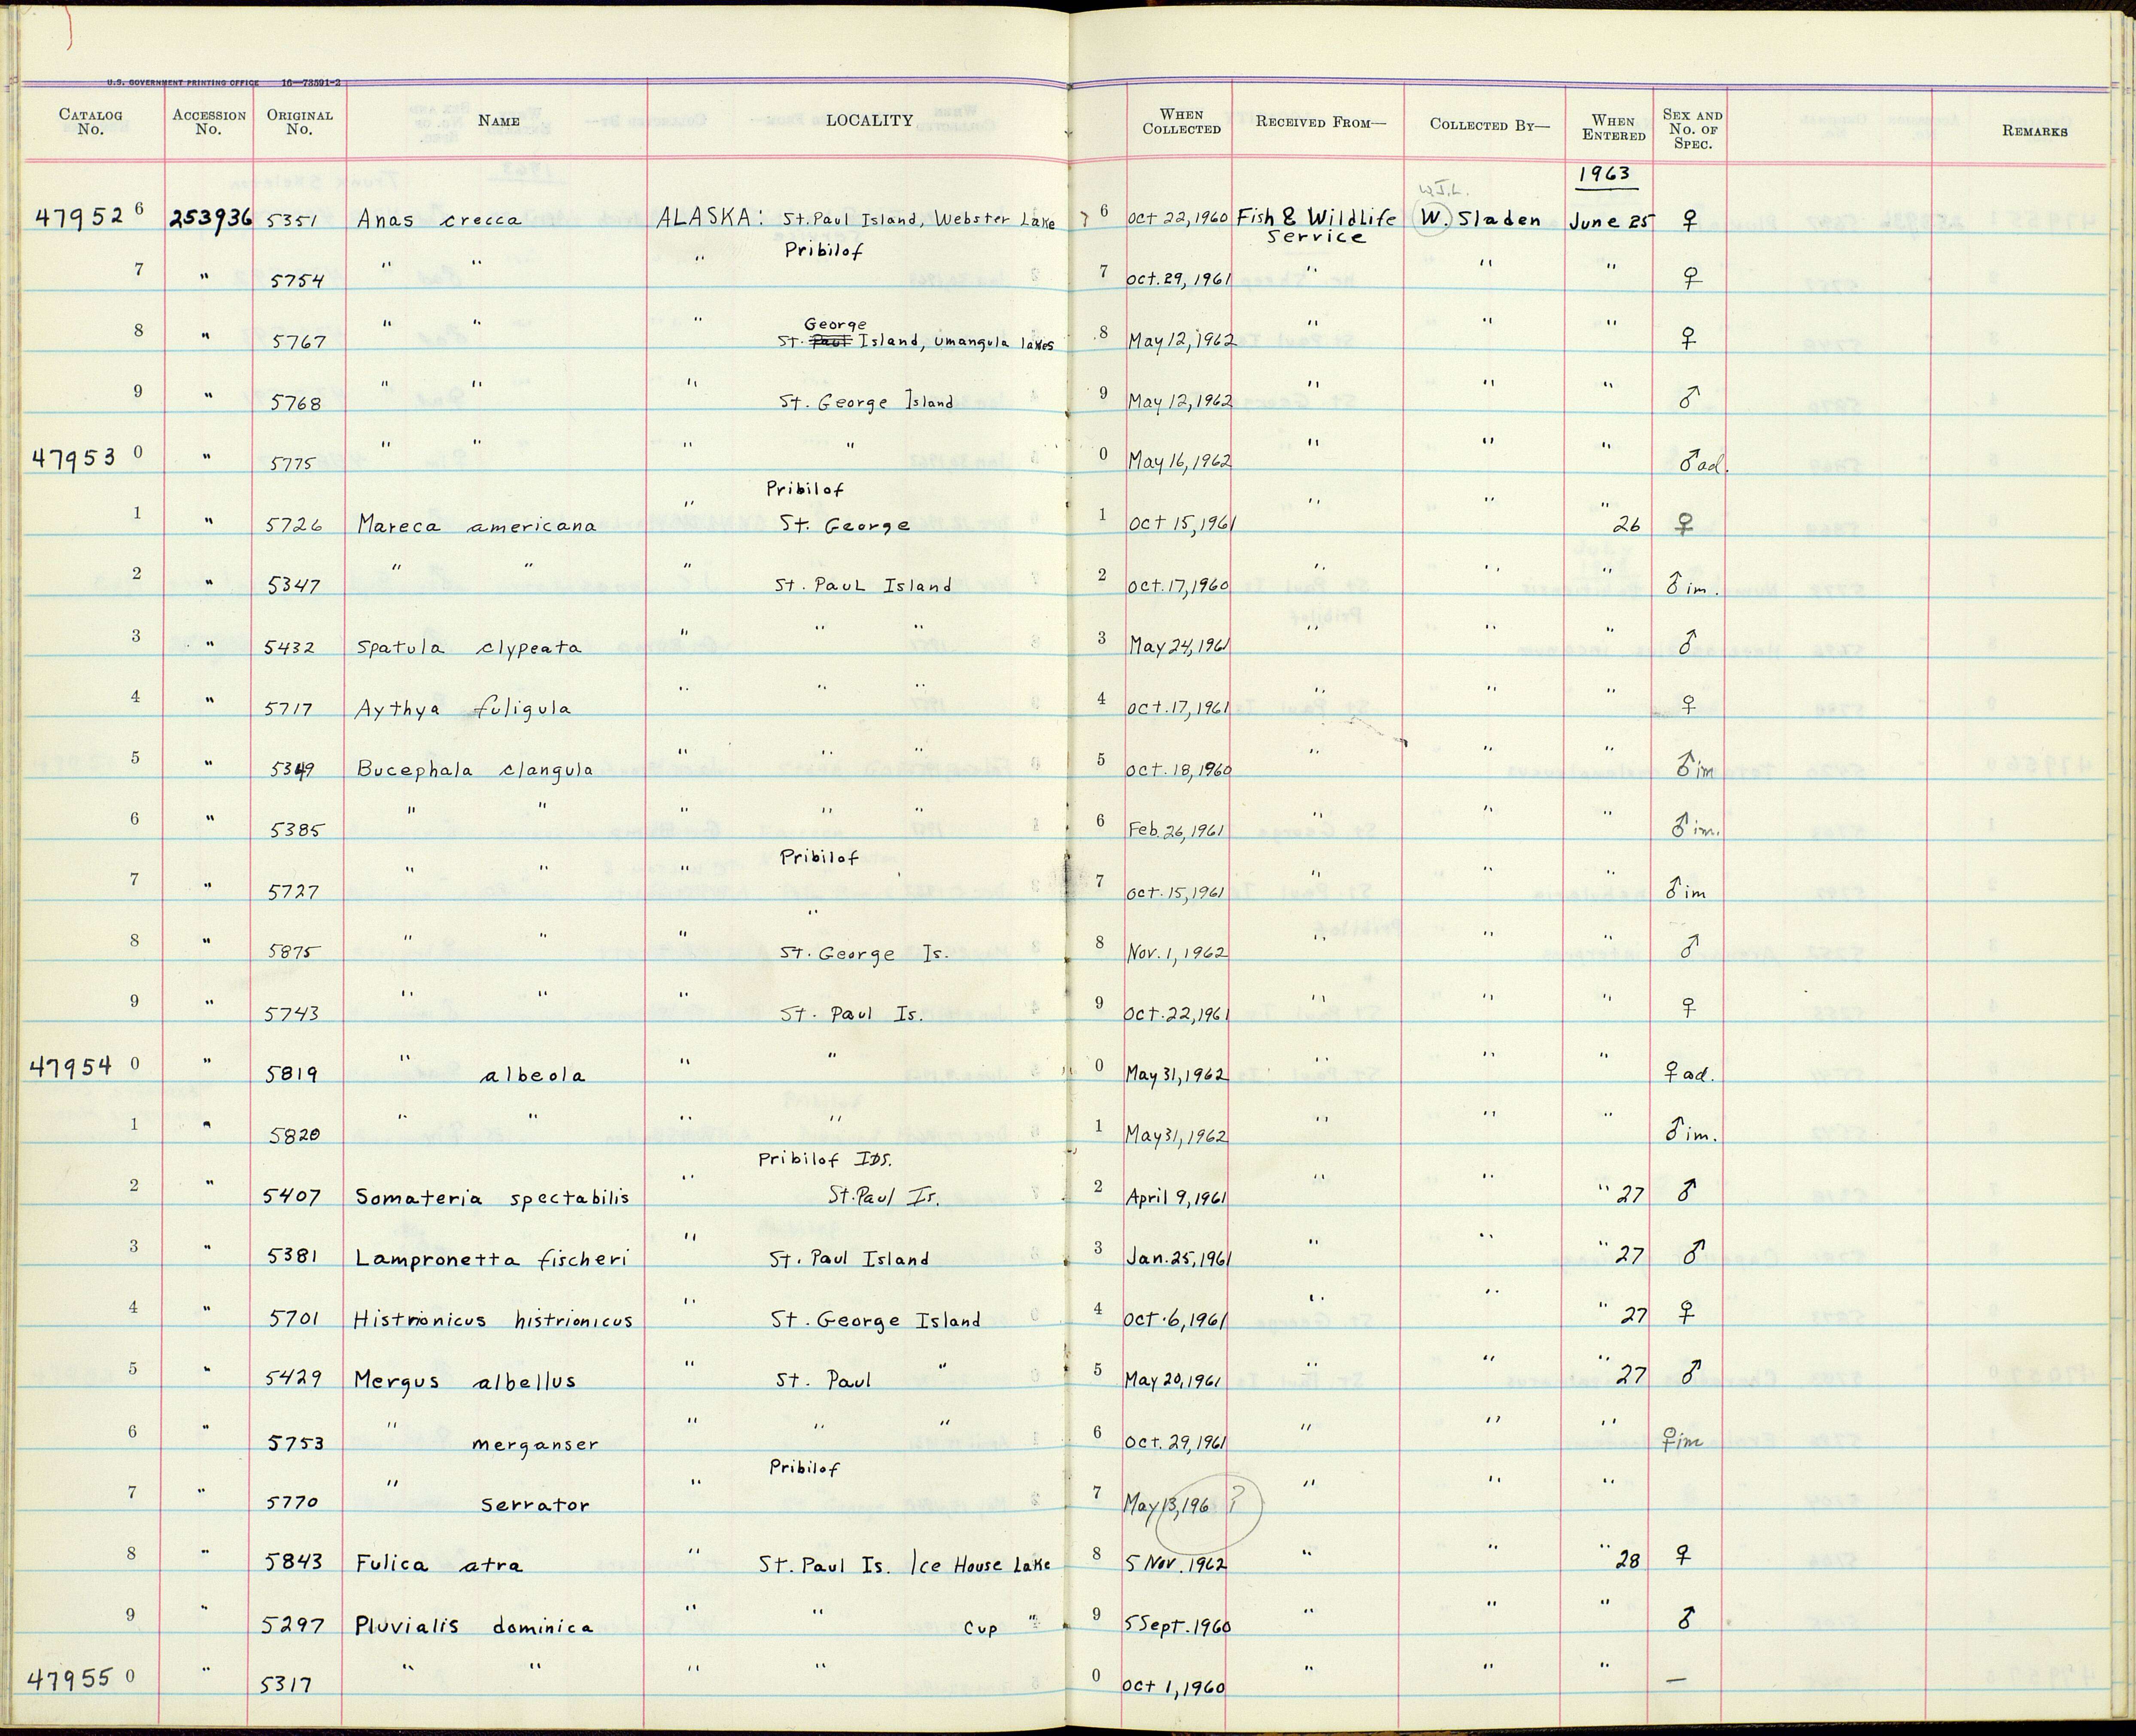 U.S. GOVERNMENT PRINTING OFFICE 16—73591-2
CATALOG No. ACCESSION No. ORIGINAL No. NAME LOCALITY WHEN COLLECTED RECEIVED FROM— COLLECTED BY— WHEN ENTERED SEX AND No. OF SPEC. REMARKS
1963
W.J.L.
47952 6 253936 5351 Anas crecca ALASKA: St. Paul Island, Webster Lake 6 Oct 22, 1960 Fish & Wildlife Service W. Sladen June 25 ♀
Pribilof
7 " 5754 " " " 7 Oct. 29, 1961 " " " ♀
George
8 " 5767 " " " St. Paul Island, Umangula lakes 8 May 12, 1962 " " " ♀
9 " 5768 " " " St. George Island 9 May 12, 1962 " " " ♂
47953 0 " 5775 " " " " 0 May 16, 1962 " " " ♂ad.
Pribilof
1 " 5726 Mareca americana " St. George 1 Oct 15, 1961 " " " 26 ♀
2 " 5347 " " " St. Paul Island 2 Oct. 17, 1960 " " " ♂im.
3 " 5432 Spatula clypeata " " " 3 May 24, 1961 " " " ♂
4 " 5717 Aythya fuligula " " " 4 Oct. 17, 1961 " " " ♀
5 " 5349 Bucephala clangula " " " 5 Oct. 18, 1960 " " " ♂im
6 " 5385 " " " " " 6 Feb. 26, 1961 " " " ♂im.
Pribilof
7 " 5727 " " " 7 Oct. 15, 1961 " " " ♂im
"
8 " 5875 " " " St. George Is. 8 Nov. 1, 1962 " " " ♂
9 " 5743 " " " St. Paul Is. 9 Oct. 22, 1961 " " " ♀
47954 0 " 5819 " albeola " " 0 May 31, 1962 " " " ♀ad.
1 " 5820 " " " " 1 May 31, 1962 " " " ♂im.
Pribilof IDS.
2 " 5407 Somateria spectabilis " St. Paul Is. 2 April 9, 1961 " " " 27 ♂
3 " 5381 Lampronetta fischeri " St. Paul Island 3 Jan. 25, 1961 " " " 27 ♂
4 " 5701 Histrionicus histrionicus " St. George Island 4 Oct. 6, 1961 " " " 27 ♀
5 " 5429 Mergus albellus " St. Paul " 5 May 20, 1961 " " " 27 ♂
6 " 5753 " merganser " " " 6 Oct. 29, 1961 " " " ♀im
Pribilof
7 " 5770 " serrator " 7 May 13, 196 ? " " "
8 " 5843 Fulica atra " St. Paul Is. Ice House Lake 8 5 Nov. 1962 " " " 28 ♀
9 " 5297 Pluvialis dominica " " Cup " 9 5 Sept. 1960 " " " ♂
47955 0 " 5317 " " " " 0 Oct 1, 1960 " " " —